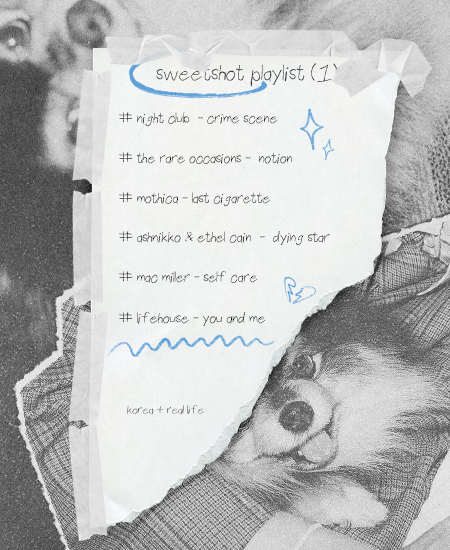 sweetshot playlist (1)
# night club - crime scene
# the rare occasions - notion
# mothica - last cigarette
# ashnikko & ethel cain - dying star
# mac miller - self care
# lifehouse - you and me
korea + real life